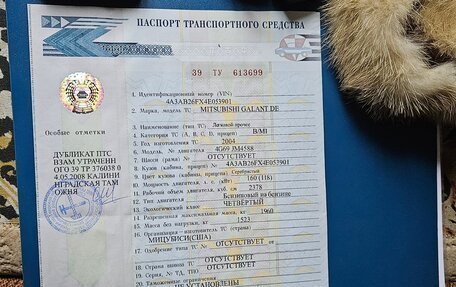 ПАСПОРТ ТРАНСПОРТНОГО СРЕДСТВА
39 ТУ 613699
1. Идентификационный номер (VIN)
4A3AB26FX4E053901
2. Марка, модель ТС MITSUBISHI GALANT DE
3. Наименование (тип ТС) Легковой прочее
4. Категория ТС (А, В, С, D, прицеп) B/M1
5. Год изготовления ТС 2004
6. Модель, № двигателя 4G69 JM4588
7. Шасси (рама) № ОТСУТСТВУЕТ
8. Кузов (кабина, прицеп) № 4A3AB26FX4E053901
9. Цвет кузова (кабины, прицепа) Серебристый
10. Мощность двигателя, л. с. (кВт) 160 (118)
11. Рабочий объем двигателя, куб. см 2378
12. Тип двигателя Бензиновый на бензине
13. Экологический класс ЧЕТВЁРТЫЙ
14. Разрешенная максимальная масса, кг 1960
15. Масса без нагрузки, кг 1523
16. Организация - изготовитель ТС (страна)
МИЦУБИСИ(США)
17. Одобрение типа ТС № ОТСУТСТВУЕТ
18. Страна вывоза ТС ОТСУТСТВУЕТ
19. Серия, № ТД, ТПО ОТСУТСТВУЕТ
20. Таможенные ограничения
НЕ УСТАНОВЛЕНЫ
Особые отметки
ДУБЛИКАТ ПТС
ВЗАМ УТРАЧЕНН
ОГО 39 ТР 376038 0
4.05.2008 КАЛИНИ
НГРАДСКАЯ ТАМ
ОЖНЯ